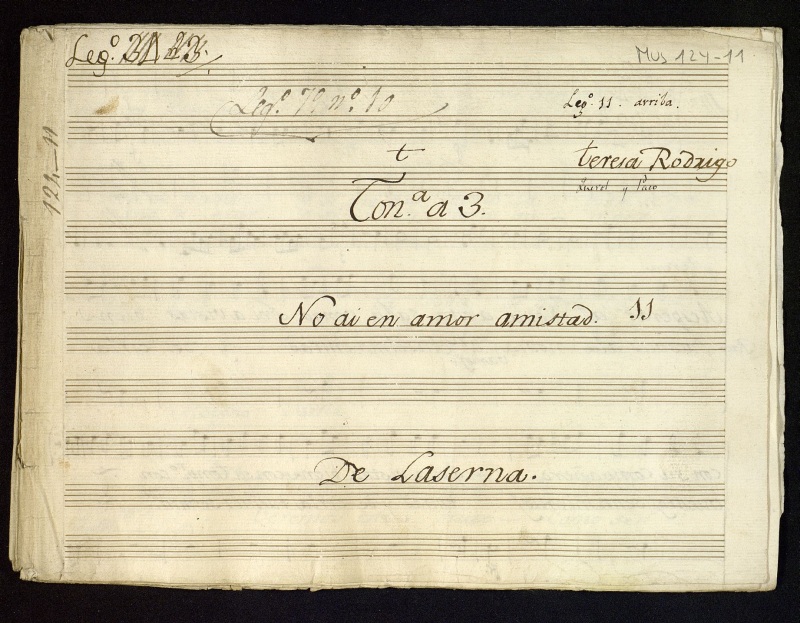 Leg.º
Mus 124-11
Leg.º 79 n.º 10
Leg.º 11. arriba.
124-11
teresa Rodrigo
y Paco
Ton.ª a 3.
No ai en amor amistad. 11
De Laserna.